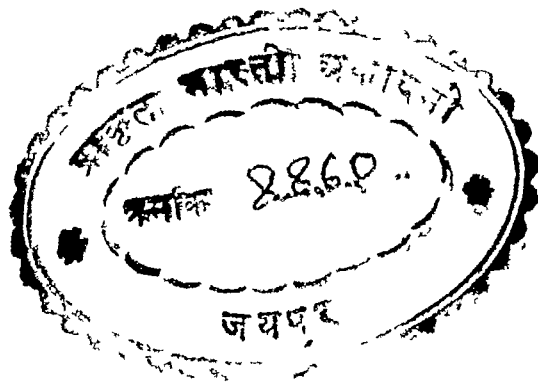 प्राकृत भारती अकादमी
क्रमांक
जयपुर